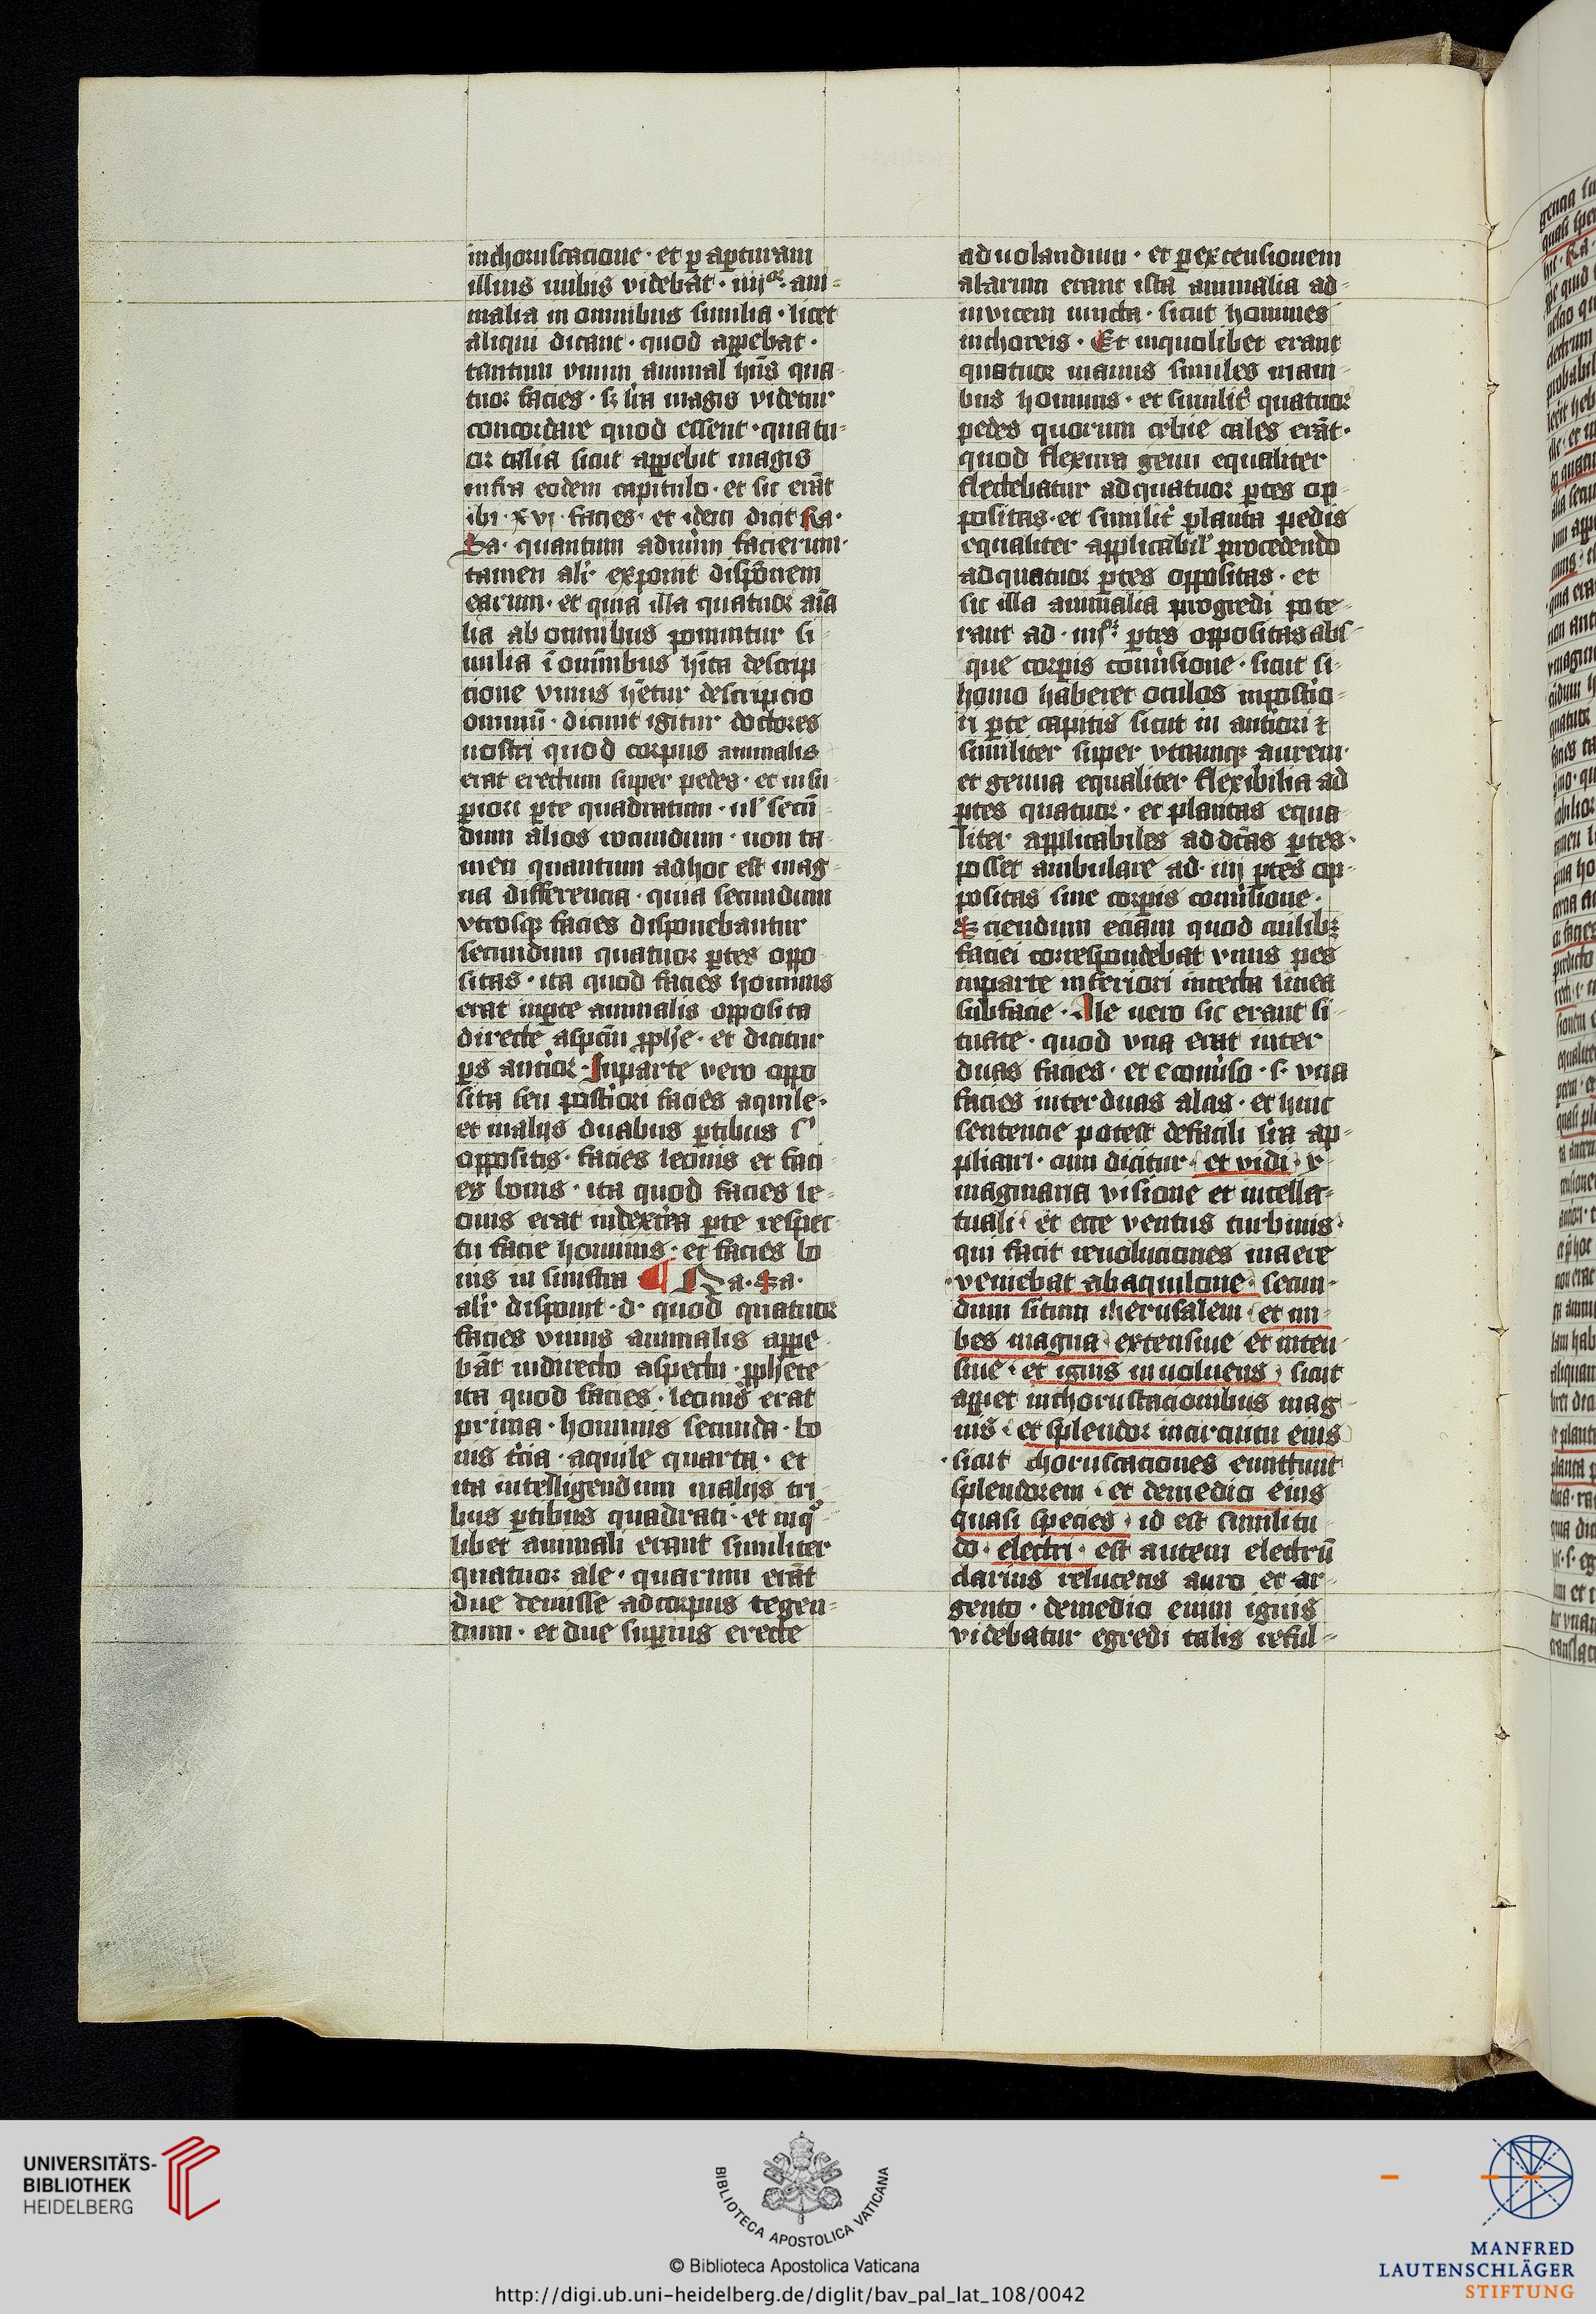 inchoruscacione · et p apcturam
illius nubis videbat · iiijor · ani-
malia in omnibus similia · licet
aliqui dicant · quod apparebat ·
tantum vnum animal hns qua-
tuor facies · sz lra magis videtur
concordare quod essent · quatu-
or talia sicut appebit magis
infra eodem capitulo · et sic erāt
ibi · xvj · facies · et idem dicit Ra ·
Sa · quantum ad nūm facierum ·
tamen alr exponit dispōnem
earum · et quia illa quatuor aīa
lia ab omnibus ponuntur si-
milia ī omībus hīta descrip
cione vnius hētur descripcio
omniū · dicunt igitur doctores
nostri quod corpus animalis
erat erectum super pedes · et in su-
piori pte quadratum · ul' secū-
dum alios rotundum · non ta-
men quantum ad hoc est mag-
na differencia · quia secundum
vtrosqz facies disponebantur
secundum quatuor ptes oppo
sitas · ita quod facies hominis
erat in pte animalis opposita
directe aspcūi pphe · et dicitur
ps antior · In parte vero oppo
sita seu postiori facies aquile ·
et in alijs duabus ptibus s'
oppositis · facies leonis et faci-
es bouis · ita quod facies le-
onis erat in dextra pte respec-
tu facie hominis · et facies bo
uis in sinistra ¶ Ra · Sa ·
alr disponit · d · quod quatuor
facies vnius animalis appe-
bāt in directo aspectu · pphete
ita quod facies · leonis erat
prima · hominis secunda · bo
uis tcia · aquile quarta · et
ita intelligendum in alijs tri-
bus ptibus quadrati · et in qo
libet animali erant similiter
quatuor ale · quarum erāt
due demisse ad corpus tegen-
dum · et due superius erecte
ad uolandum · et p extensionem
alarum erant ista animalia ad-
invicem iuncta · sicut homines
in choreis · Et in quolibet erant
quatuor manus similes mani-
bus hominis · et similit quatuor
pedes quorum tibie tales erāt ·
quod flexura genu equaliter
flectebatur ad quatuor ptes op-
positas · et similit planta pedis
equaliter applicabil' procedendo
ad quatuor ptes oppositas · et
sic illa animalia progredi pote-
rant ad · iiijor ptes oppositas abs-
que corpis conūsione · sicut si-
homo haberet oculos in postio-
ri pte capitis sicut in antiori ⁊
similiter super vtramqz aurem ·
et genua equaliter flexibilia ad
ptes quatuor · et plantas equa-
liter applicabiles ad dcas ptes ·
posset ambulare ad · iiij ptes op-
positas sine corpis conūsione ·
Sciendum eciam quod cuilibz
faciei correspondebat vnus pes
in parte inferiori in recta linea
sub facie · Ale uero sic erant si-
tuate · quod vna erat inter
duas facies · et econūso · s · vna
facies inter duas alas · et huic
sentencie potest de facili lra ap-
plicari · cum dicitur · et vidi · y-
maginaria visione et intellec-
tuali · et ecce ventus turbinis ·
qui facit reuoluciones in aere
· veniebat ab aquilone · secun-
dum situm iherusalem · et nu-
bes magna · extensiue et inten-
siue · et ignis inuoluens · sicut
appet in choruscacionibus mag-
nis · et splendor in circuitu eius
· sicut choruscaciones emittunt
splendorem · et de medio eius
quasi species · id est similitu
do · electri · est autem electrū
clarius relucens auro et ar-
gento · de medio enim ignis
videbatur egredi talis reful-
UNIVERSITÄTS-
BIBLIOTHEK
HEIDELBERG
BIBLIOTECA APOSTOLICA VATICANA
© Biblioteca Apostolica Vaticana
http://digi.ub.uni-heidelberg.de/diglit/bav_pal_lat_108/0042
MANFRED
LAUTENSCHLÄGER
STIFTUNG